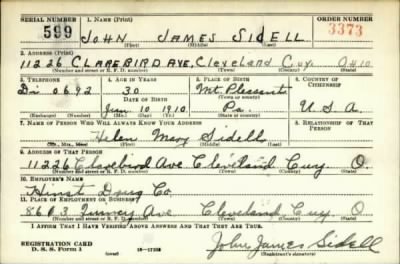 SERIAL NUMBER 1. NAME (Print) ORDER NUMBER
599 JOHN JAMES SIDELL 3373
(First) (Middle) (Last)
2. ADDRESS (Print)
11226 CLAREBIRD AVE, Cleveland Cuy. OHIO
(Number and street or R. F. D. number) (Town) (County) (State)
3. TELEPHONE 4. AGE IN YEARS 5. PLACE OF BIRTH 6. COUNTRY OF CITIZENSHIP
Di 0692 30 Mt. Pleasant
DATE OF BIRTH (Town or county)
Jun 10 1910 Pa. U.S.A.
(Exchange) (Number) (Mo.) (Day) (Yr.) (State or country)
7. NAME OF PERSON WHO WILL ALWAYS KNOW YOUR ADDRESS 8. RELATIONSHIP OF THAT PERSON
Helen Mary Sidell
(Mr., Mrs., Miss) (First) (Middle) (Last)
9. ADDRESS OF THAT PERSON
11226 Clarebird Ave Cleveland Cuy O.
(Number and street or R. F. D. number) (Town) (County) (State)
10. EMPLOYER'S NAME
Drug Co.
11. PLACE OF EMPLOYMENT OR BUSINESS
8603 Quincy Ave Cleveland Cuy. O.
(Number and street or R. F. D. number) (Town) (County) (State)
I AFFIRM THAT I HAVE VERIFIED ABOVE ANSWERS AND THAT THEY ARE TRUE.
REGISTRATION CARD
D. S. S. FORM 1 (over) John James Sidell
(Registrant's signature)